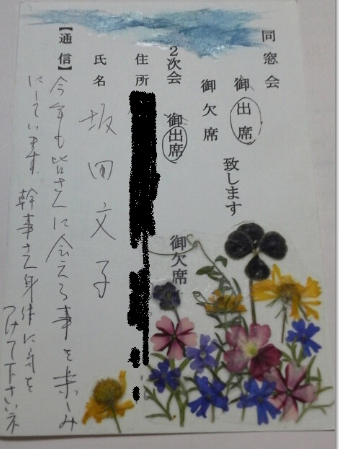 同窓会
御出席
御欠席
致します
2次会 御出席
御欠席
住所
氏名 坂田文子
【通信】今年も皆さんに会える事を楽しみ
にしています。幹事さん身体に気を
つけて下さいネ